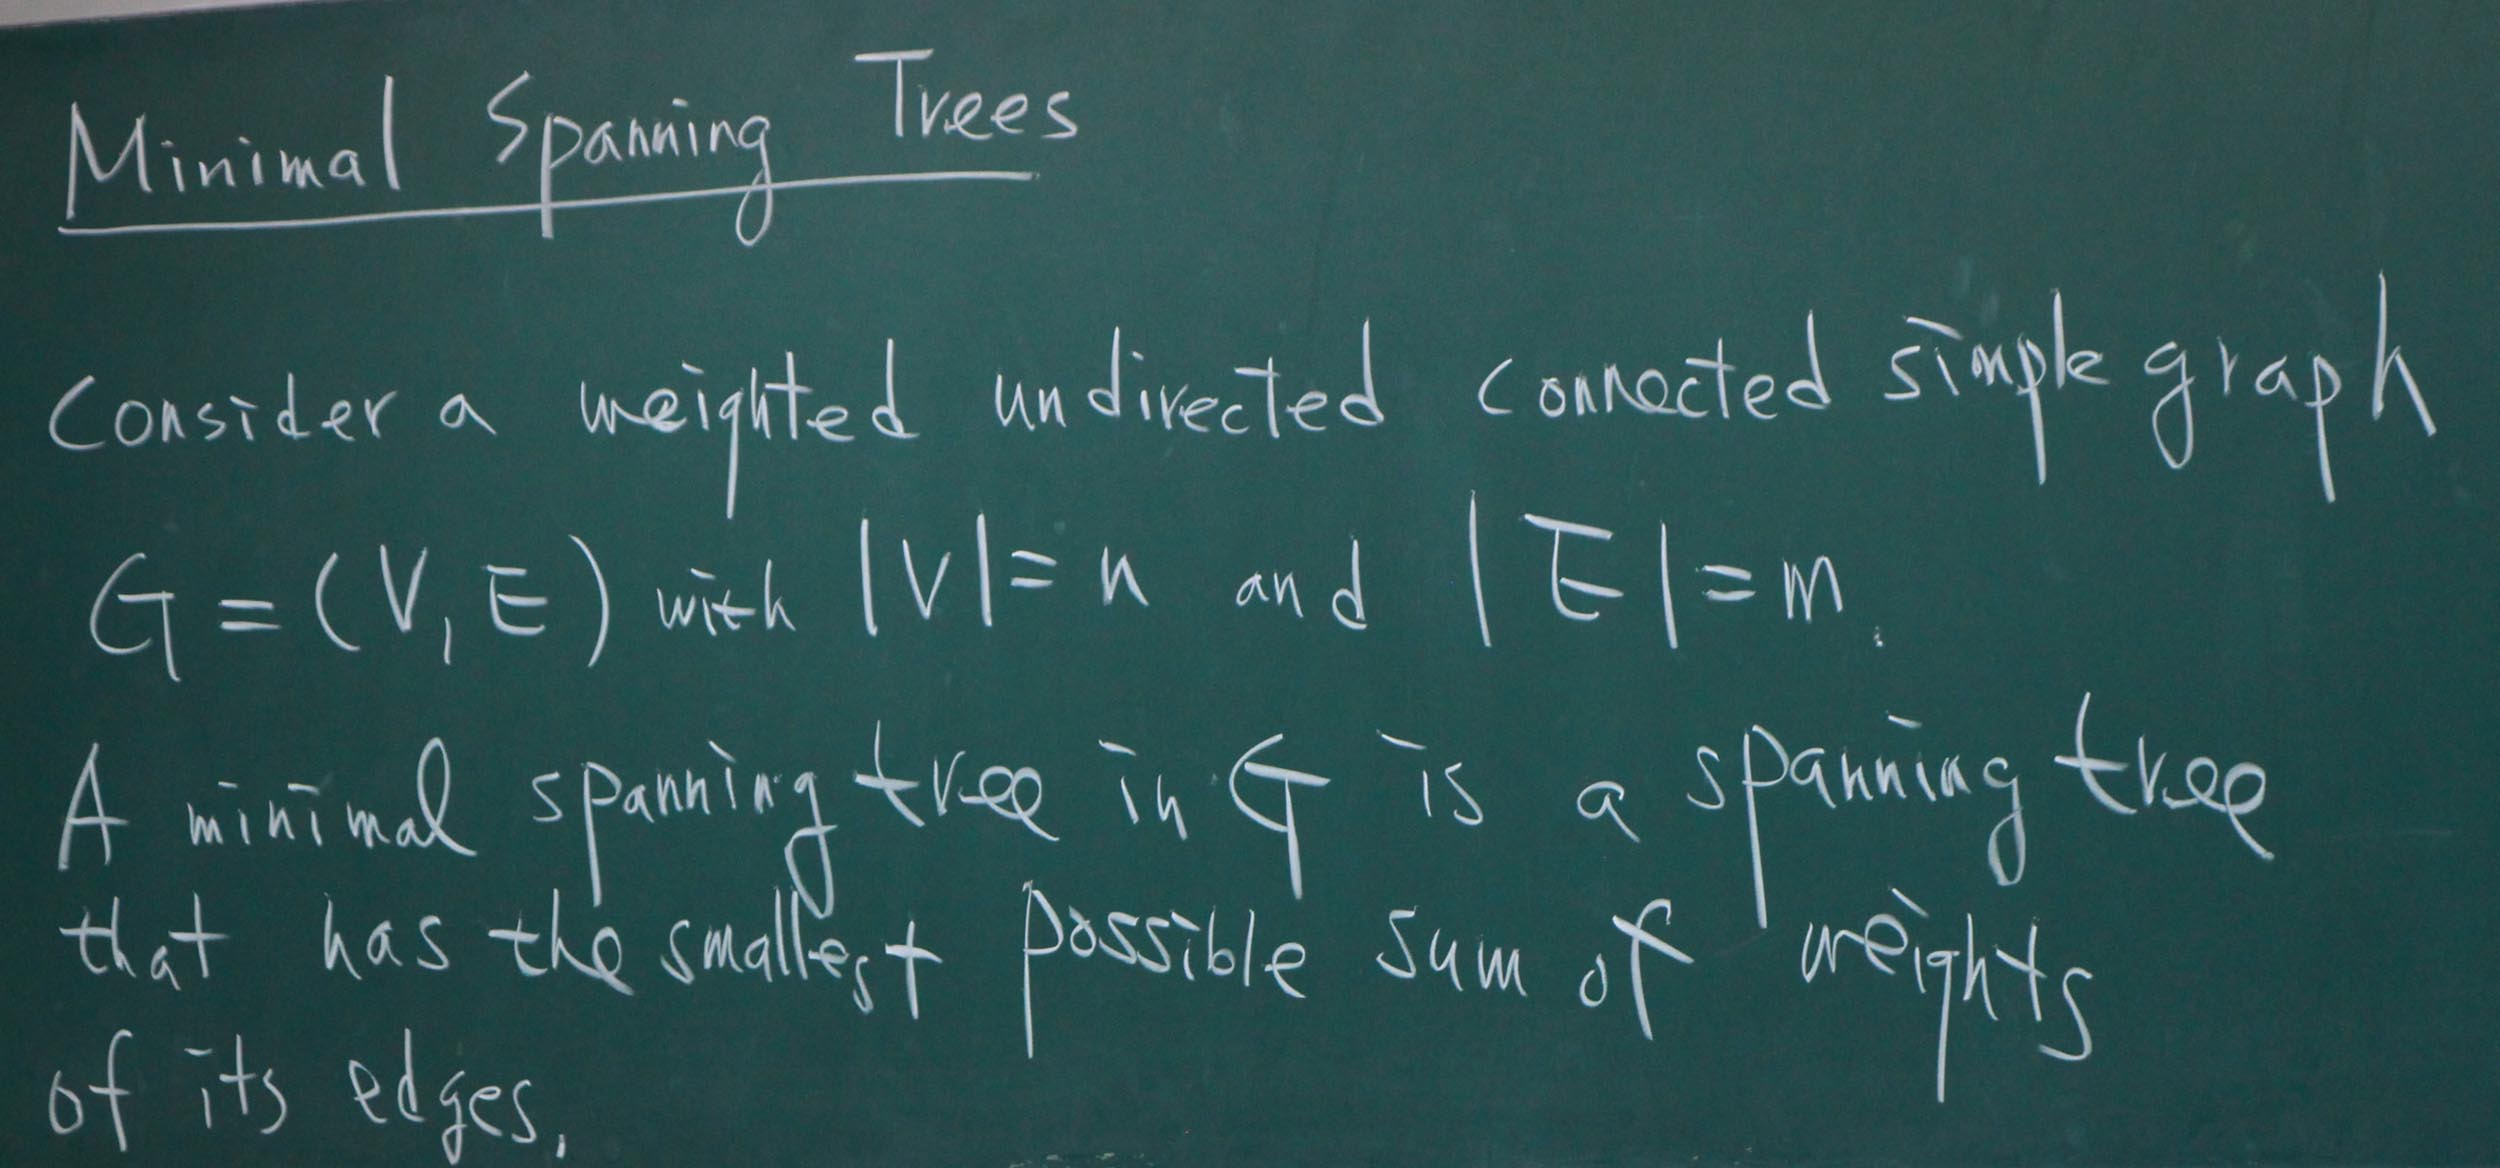 Minimal Spanning Trees
Consider a weighted undirected connected simple graph
G = (V, E) with |V| = n and |E| = m.
A minimal spanning tree in G is a spanning tree
that has the smallest possible sum of weights
of its edges.